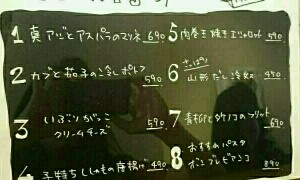 1 真アジとアスパラのマリネ 690
2 カブと茄子の冷しポトフ 590
3 いぶりがっこ
クリームチーズ 590
4 子持ちししゃもの唐揚げ 490
5 肉巻き焼き 590
6 さっぱり
山形だし冷奴 490
7 青村に とタケノコのフリット 690
8 おすすめパスタ
ボンゴレビアンコ 890